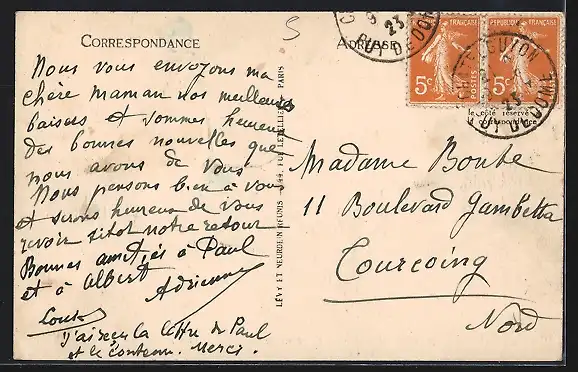 CORRESPONDANCE
ADRESSE
Nous vous envoyons ma
chère maman nos meilleurs
baisers et sommes heureux
des bonnes nouvelles que
nous avons de vous
Nous pensons bien à vous
et serons heureux de vous
revoir sitôt notre retour
Bonnes amitiés à Paul
et à Albert
Adrienne
Louis
J'ai reçu la lettre de Paul
et le contenu. Merci.
LÉVY ET NEURDEIN RÉUNIS
PARIS
Madame Boute
11 Boulevard Gambetta
Tourcoing
Nord
RÉPUBLIQUE FRANÇAISE
5c
POSTES
5c
23
PUY DE DOME
GUYON
23
PUY DE DOME
le côté réservé
correspondance
S